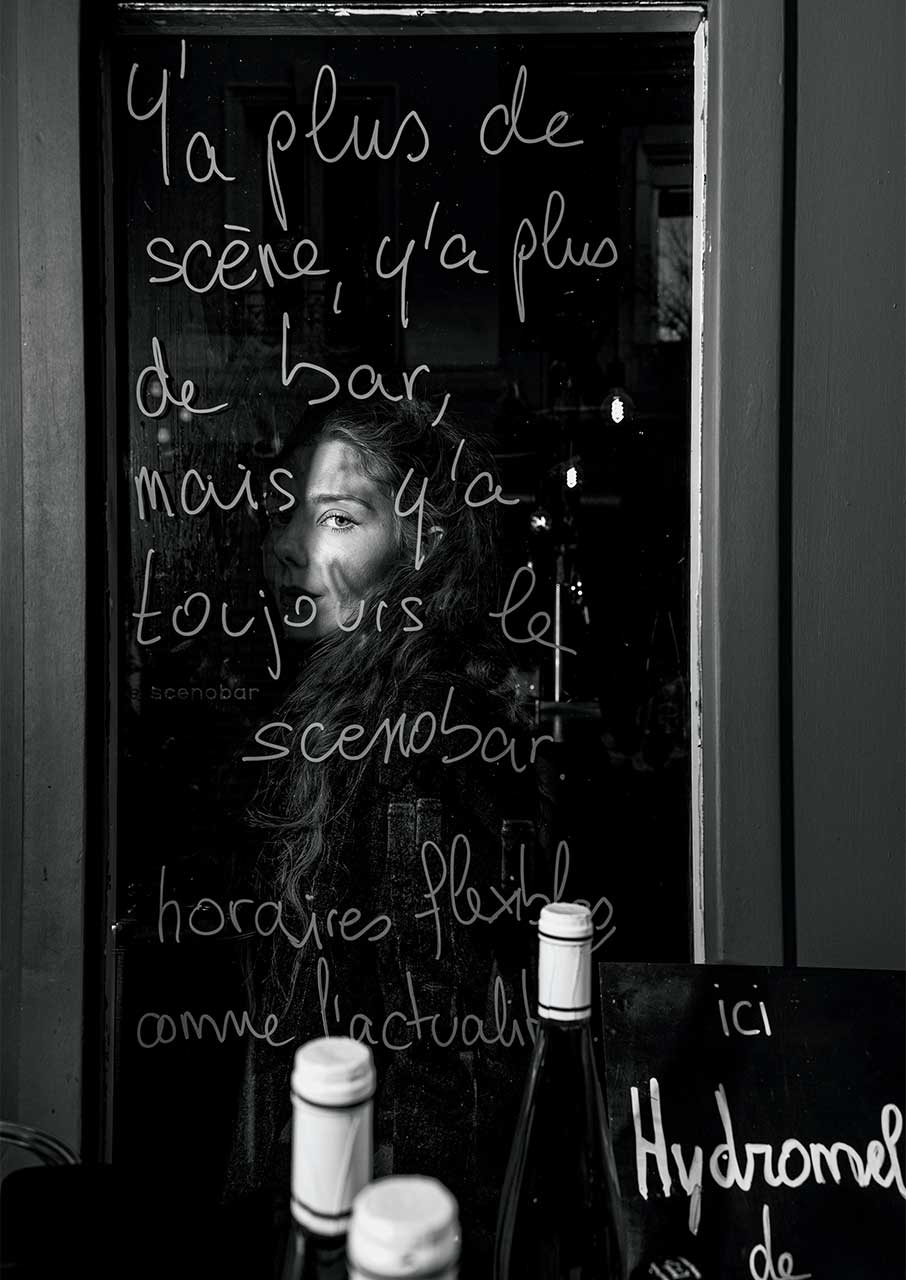 Y'a plus de
scène, y'a plus
de bar,
mais y'a
toujours le
scenobar
scenobar.
horaires flexibles
comme l'actualit
ici
Hydromel
de